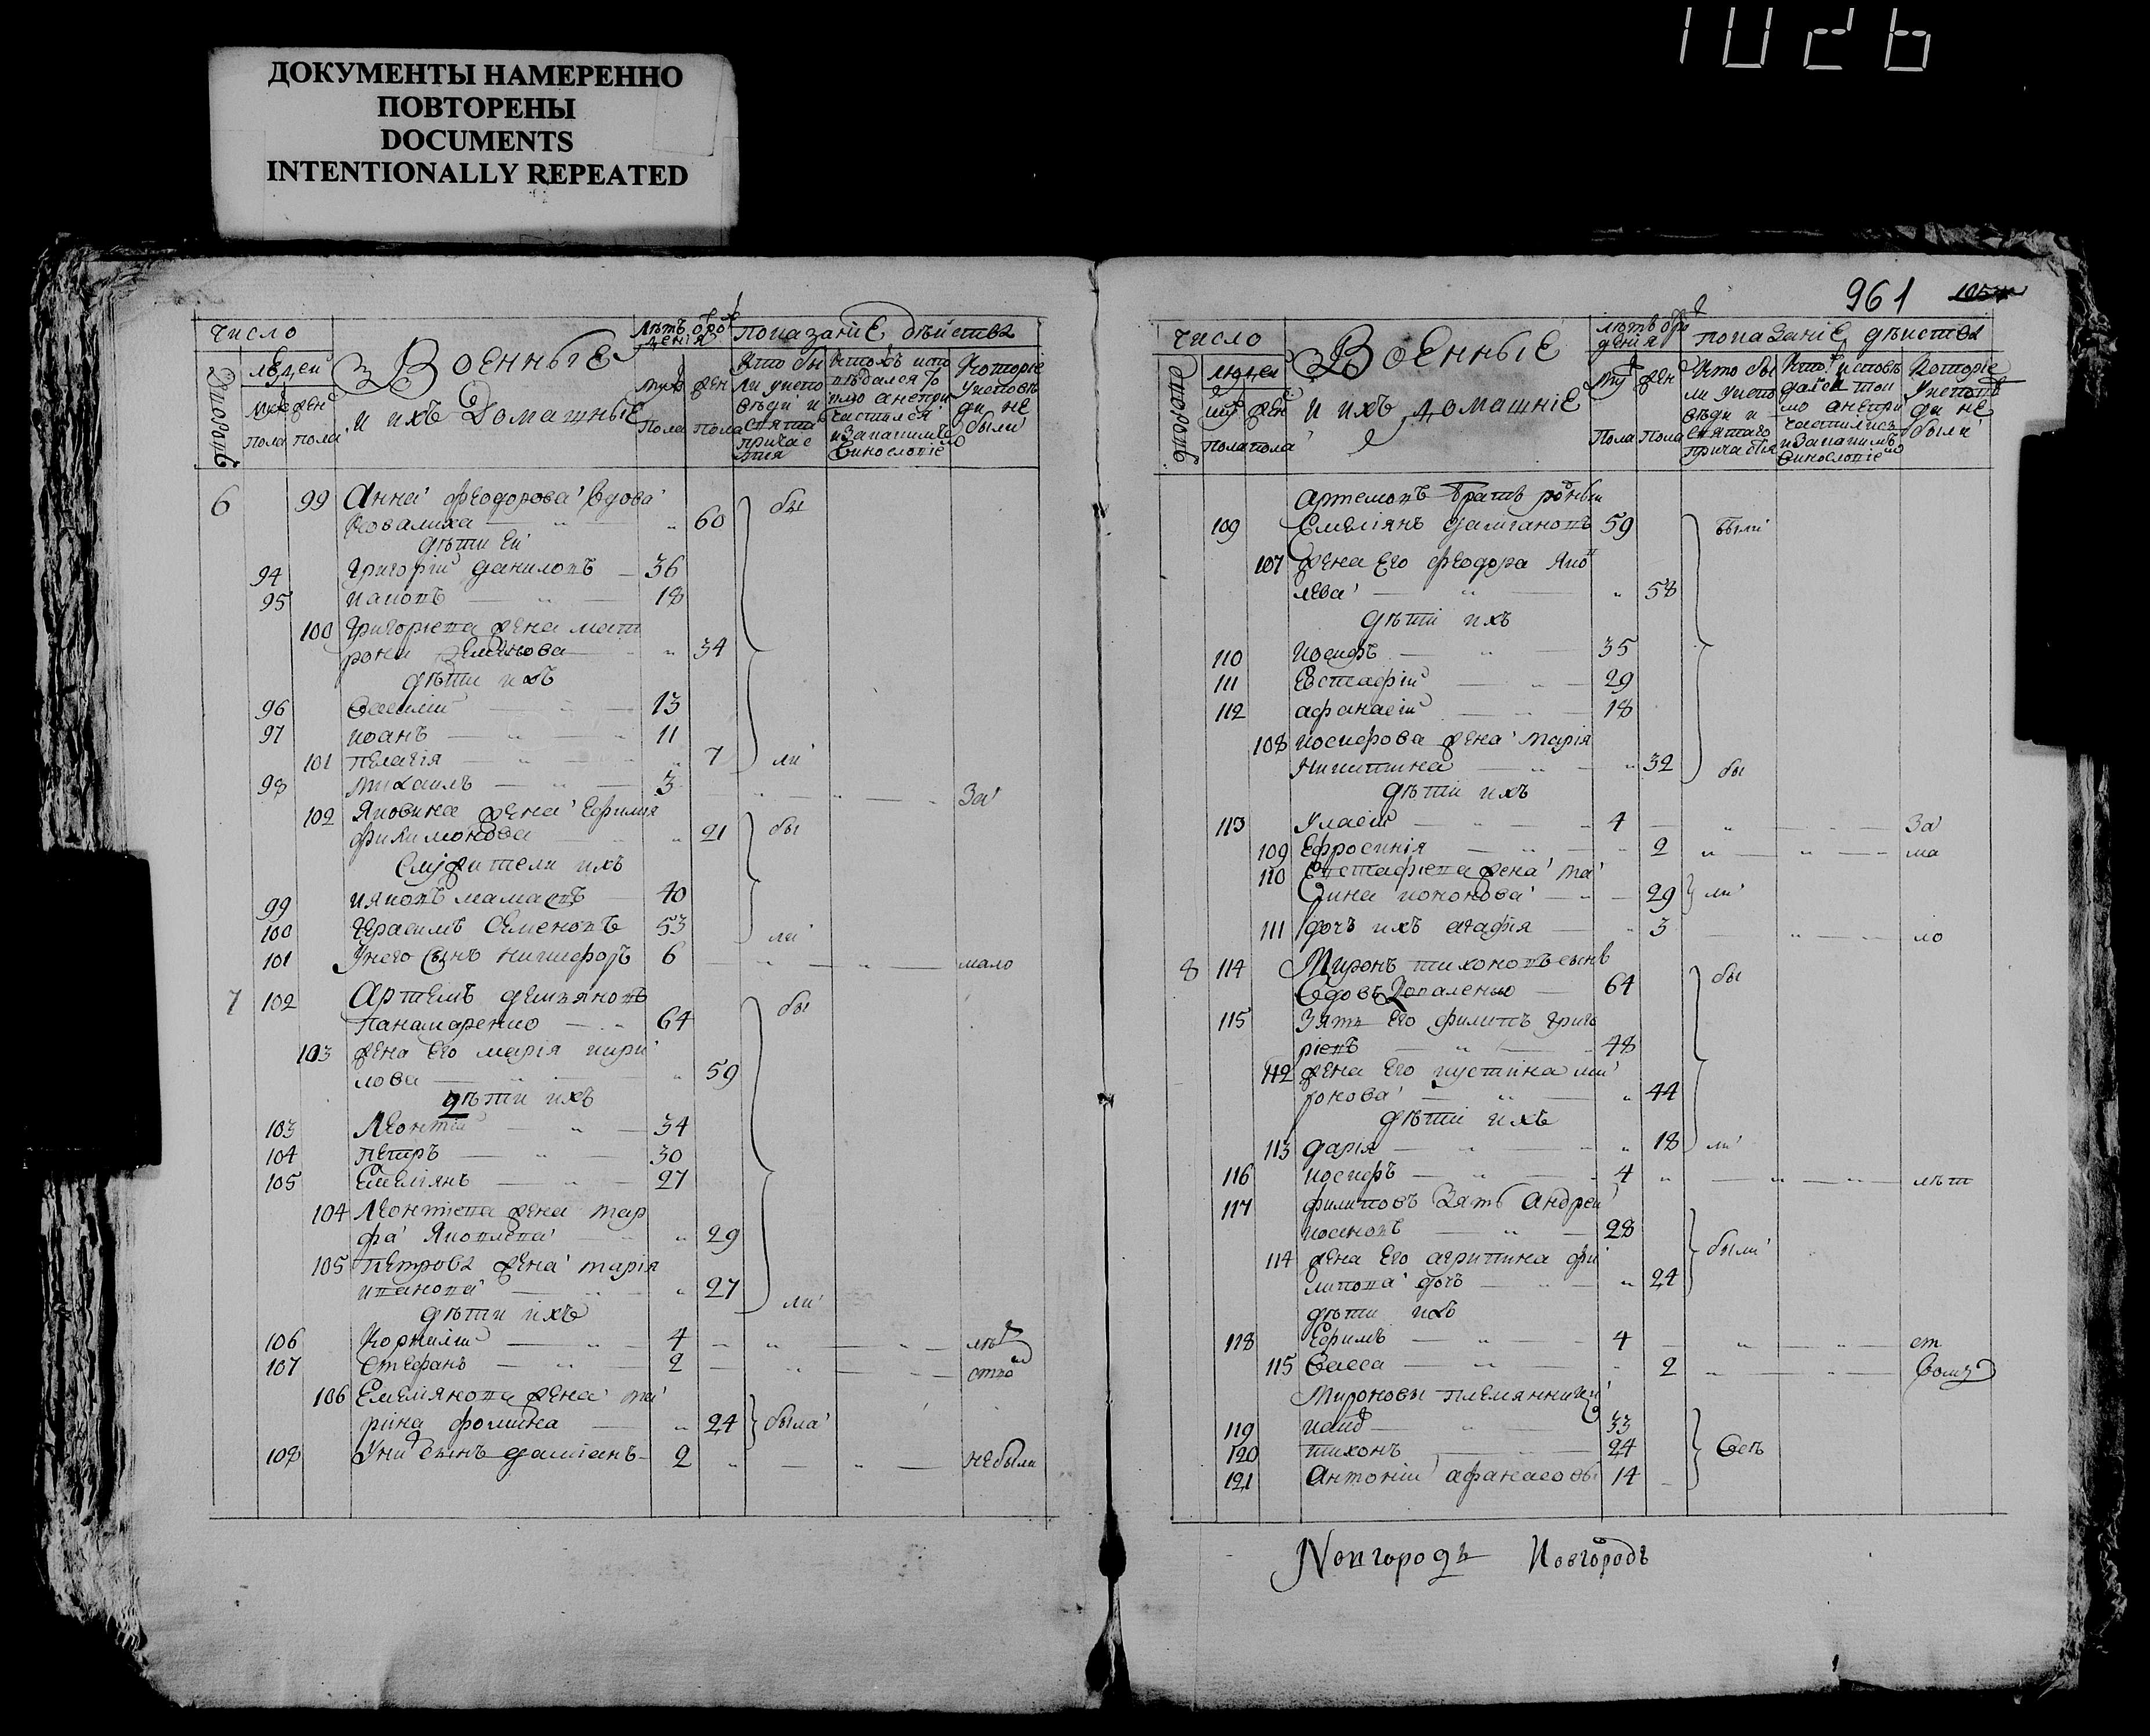 1026
ДОКУМЕНТЫ НАМЕРЕННО
ПОВТОРЕНЫ
DOCUMENTS
INTENTIONALLY REPEATED
число
людей
Дворовъ
муж жен
пола пола
Военные
и ихъ Домашные
лѣтъ о рож
денія
муж жен
пола пола
показание дѣйства
Кто бы
ли у испо
вѣди и
святаго
причас
тия
Которіе
у исповѣ
ди не
были
6 99 Анна феодорова вдова
Ковалиха 60 бы
дѣти ей
94 Григорій даниловъ 36
95 иаковъ 18
100 Григориева жена мат
рона Семенова 34
дѣти ихъ
96 василій 13
97 иоанъ 11
101 пелагія 7 ли
98 михаилъ 3 За
102 Яковина жена Ефимия
филимонова 21 бы
служители ихъ
99 иаковъ 40
100 Герасимъ Семеновъ 53 ли
101 Унего сынъ никифоръ 6 мало
7 102 Артемъ демяновъ
панамаренко 64 бы
103 жена его марія кири
лова 59
дѣти ихъ
103 Леонтій 34
104 петръ 30
105 Емелянъ 27
104 Леонтиева жена мар
фа Яковлева 29
105 петрова жена марія
иванова 27 ли
дѣти ихъ
106 Корнилій 4 лѣт
107 Стефанъ 2 ство
106 Емелянова жена ма
рина фомина 24 была
108 Уних сынъ дамианъ 2 небыли
961
число
людей
дворовъ
муж жен
пола пола
Военные
и ихъ домашніе
лѣтъ о рож
дения
муж жен
пола пола
показание дѣиства
Кто бы
ли у испо
вѣди и
святаго
причастія
Которіе
у исповѣ
ди не
были
Артемовъ братъ родный
109 Емелянъ дамиановъ 59 были
107 жена его феодора Яко
лева 58
дѣти ихъ
110 иосифъ 35
111 Евстафій 29
112 афанасій 18
108 иосифова жена марія
никитина 32 бы
дѣти ихъ
113 Уласій 4 За
109 Ефросинія 2 ма
110 Евстафиева жена ма
111 дочь ихъ агафия 3 ло
8 114 Миронъ тихоновъ сынъ
вдовъ Коваленко 64 бы
115 Зять его филипъ григо
риевъ 48
112 жена его иустина ми
ронова 44
дѣти ихъ
113 дария 18 ли
116 иосифъ 4 лѣт
117 филиповъ Зять Андрей
28
114 жена его агрипина фи
липова дочь 24 были
дѣти ихъ
118 Ефимъ 4 ст
115 васса 2
Мироновы племянники
119 33
120 тихонъ 24
121 Антоній афанасовы 14
Новгородъ Новгородъ